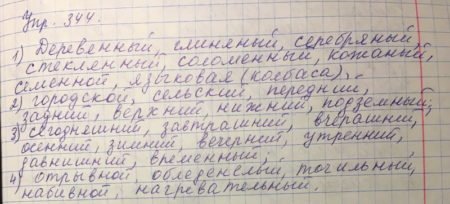 Упр. 344.
1) Деревенный, глиняный, серебряный,
стеклянный, соломенный, кожаный,
семенной, языковая (колбаса).
2) городской, сельский, передний,
задний, верхний, нижний, подземный;
3) сегодняшний, завтрашний, вчерашний,
осенний, зимний, вечерний, утренний,
давнишний, временный;
4) отрывной, обледенелый, точильный,
набивной, нагревательный.